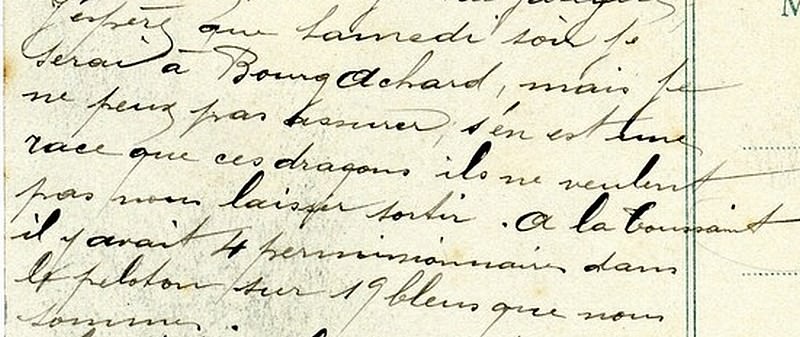 j'espère que Samedi soir je
serai à Bourgachard, mais je
ne peux pas assurer, s'en est une
race que ces dragons ils ne veulent
pas nous laisser sortir. A la toussaint
il y avait 4 permissionnaires dans
le peloton sur 19 bleus que nous
sommes.